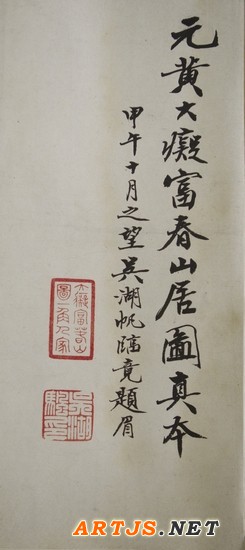 元黄大癡富春山居圖真本
甲午十月之望吳湖帆臨竟題眉
大癡富春山
圖一角人家
吳湖
颿印
ARTJS.NET